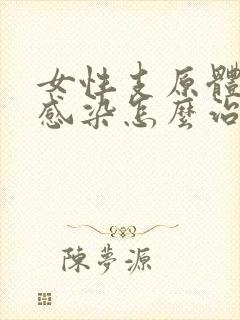 女性支原體
感染怎麼治
陳夢源